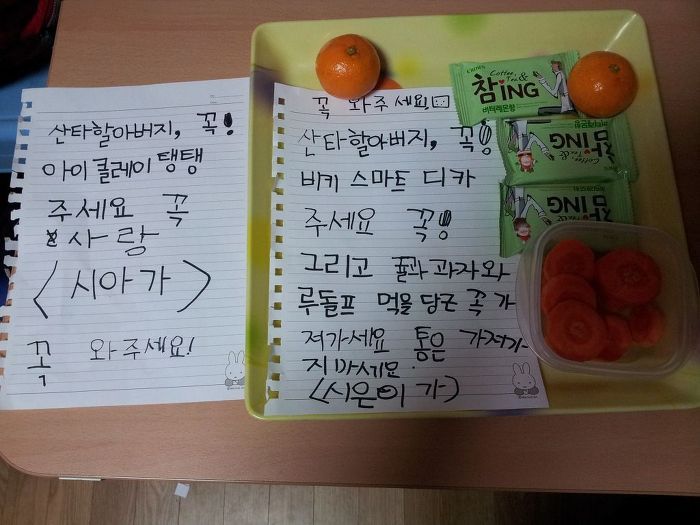 산타할아버지, 꼭!
아이클레이 탱탱
주세요 꼭
사랑
〈시아가〉
꼭 와주세요!
꼭 와주세요!
산타할아버지, 꼭!
비키 스마트 디카
주세요 꼭!
그리고 귤과 과자와
루돌프 먹을 당근 꼭 가
져가세요 통은 가져가
지마세요.
〈시은이가〉
CROWN
Coffee, Tea &
참ING
비틱레몬향
Coffee, Tea &
참ING
참ING